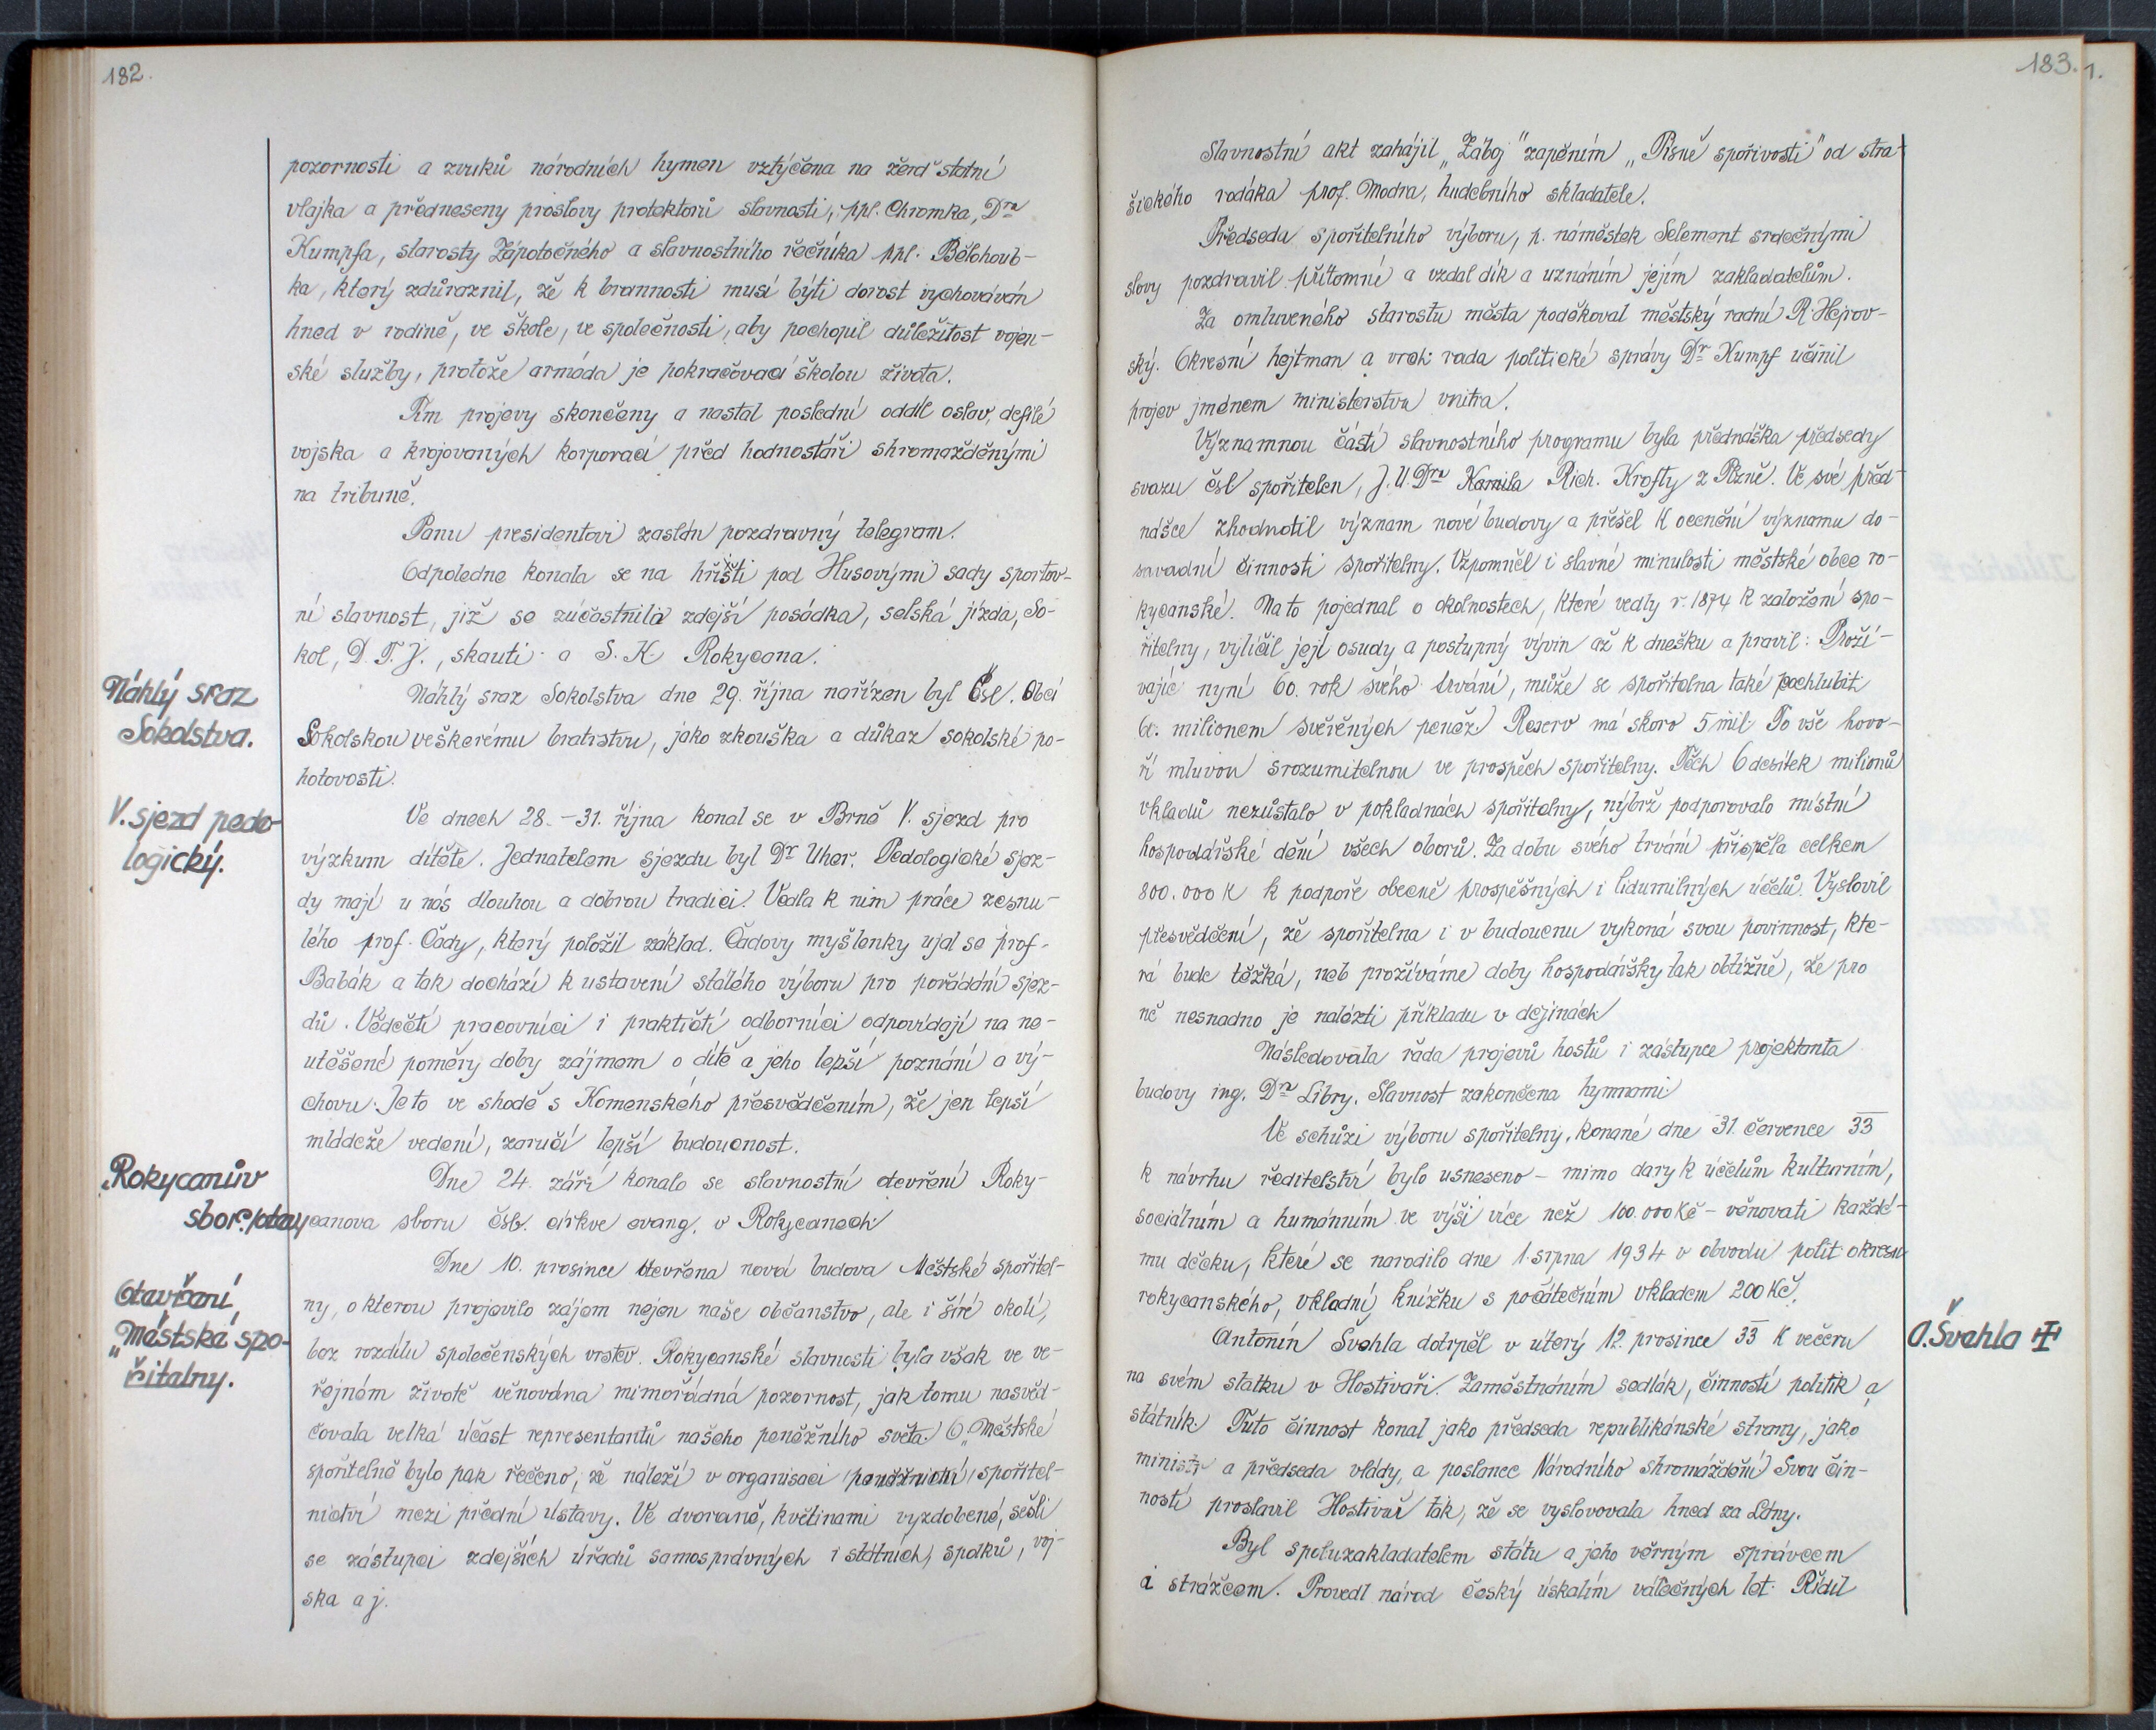 182.
pozornosti a zvuků národních hymen vztýčena na žerď státní
vlajka a předneseny proslovy protektorů slavnosti, ppl. Chromka, Dra
Kumpfa, starosty Zápotočného a slavnostního řečníka ppl. Bělohoub-
ka, který zdůraznil, že k brannosti musí býti dorost vychováván
hned v rodině, ve škole, ve společnosti, aby pochopil důležitost vojen-
ské služby, protože armáda je pokračovací školou života.
Tím projevy skončeny a nastal poslední oddíl oslav, defilé
vojska a krojovaných korporací před hodnostáři shromážděnými
na tribuně.
Panu presidentovi zaslán pozdravný telegram.
Odpoledne konala se na hřišti pod Husovými sady sportov-
ní slavnost, již se zúčastnila zdejší posádka, selská jízda, So-
kol, D. T. J., skauti a S. K. Rokycana.
Náhlý sraz
Sokolstva.
Náhlý sraz Sokolstva dne 29. října nařízen byl Čsl. Obcí
Sokolskou veškerému bratrstvu, jako zkouška a důkaz sokolské po-
hotovosti.
V. sjezd pedo-
logický.
Ve dnech 28.-31. října konal se v Brně V. sjezd pro
výzkum dítěte. Jednatelem sjezdu byl Dr Uher. Pedologické sjez-
dy mají u nás dlouhou a dobrou tradici. Vedla k nim práce zesnu-
lého prof. Čády, který položil základ. Čádovy myšlenky ujal se prof.
Babák a tak dochází k ustavení stálého výboru pro pořádání sjez-
dů. Vědečtí pracovníci i praktičtí odborníci odpovídají na ne-
utěšené poměry doby zájmem o dítě a jeho lepší poznání a vý-
chovu. Je to ve shodě s Komenského přesvědčením, že jen lepší
mládeže vedení, zaručí lepší budoucnost.
Rokycanův
sbor.
Dne 24. září konalo se slavnostní otevření Roky-
canova sboru čsb. církve evang. v Rokycanech
Otevření
"Městské spo-
řitelny.
Dne 10. prosince otevřena nová budova Městské spořitel-
ny, o kterou projevilo zájem nejen naše občanstvo, ale i širé okolí,
bez rozdílu společenských vrstev. Rokycanské slavnosti byla však ve ve-
řejném životě věnována mimořádná pozornost, jak tomu nasvěd-
čovala velká účast representantů našeho peněžního světa. O "Městské
spořitelně bylo pak řečeno, že náleží v organisaci peněžnictví spořitel-
nictví mezi přední ústavy. Ve dvoraně, květinami vyzdobené, sešli
se zástupci zdejších úřadů samosprávných i státních, spolků, voj-
ska a j.
183.
1.
Slavnostní akt zahájil "Záboj" zapěním "Písně spořivosti" od stra-
šického rodáka prof. Modra, hudebního skladatele.
Předseda spořitelního výboru, p. náměstek Selement srdečnými
slovy pozdravil přítomné a vzdal dík a uznáním jejím zakladatelům.
Za omluveného starostu města poděkoval městský radní R. Hejrov-
ský. Okresní hejtman a vrch. rada politické správy Dr Kumpf učinil
projev jménem ministerstva vnitra.
Významnou částí slavnostního programu byla přednáška předsedy
svazu čsl spořitelen, J.U.Dra Kamila Rich. Krofty z Plzně. Ve své před-
nášce zhodnotil význam nové budovy a přešel k ocenění významu do-
savadní činnosti spořitelny. Vzpomněl i slavné minulosti městské obce ro-
kycanské. Na to pojednal o okolnostech, které vedly r. 1874 k založení spo-
řitelny, vylíčil její osudy a postupný vývin až k dnešku a pravil: Proží-
vajíc nyní 60. rok svého trvání, může se spořitelna také pochlubit
60. milionem svěřených peněz. Reserv má skoro 5 mil. To vše hovo-
ří mluvou srozumitelnou ve prospěch spořitelny. Těch 6 desítek milionů
vkladů nezůstalo v pokladnách spořitelny, nýbrž podporovalo místní
hospodářské dění všech oborů. Za dobu svého trvání přispěla celkem
800.000 K k podpoře obecně prospěšných i lidumilných účelů. Vyslovil
přesvědčení, že spořitelna i v budoucnu vykoná svou povinnost, kte-
rá bude těžká, neb prožíváme doby hospodářsky tak obtížné, že pro
ně nesnadno je nalézti příkladu v dějinách
Následovala řada projevů hostů i zástupce projektanta
budovy ing. Dra Libry. Slavnost zakončena hymnami.
Ve schůzi výboru spořitelny, konané dne 31. července 33
k návrhu ředitelství bylo usneseno - mimo dary k účelům kulturním,
sociálním a humánním ve výši více než 100.000 Kč - věnovati každé-
mu děcku, které se narodilo dne 1. srpna 1934 v obvodu polit. okresu
rokycanského, vkladní knížku s počátečním vkladem 200 Kč.
A. Švehla ✝
Antonín Švehla dotrpěl v úterý 12. prosince 33 k večeru
na svém statku v Hostivaři. Zaměstnáním sedlák, činností politik a
státník. Tuto činnost konal jako předseda republikánské strany, jako
ministr a předseda vlády, a poslanec Národního shromáždění. Svou čin-
ností proslavil Hostivař tak, že se vyslovovala hned za Lány.
Byl spoluzakladatelem státu a jeho věrným správcem
a strážcem. Provedl národ český úskalím válečných let. Řídil